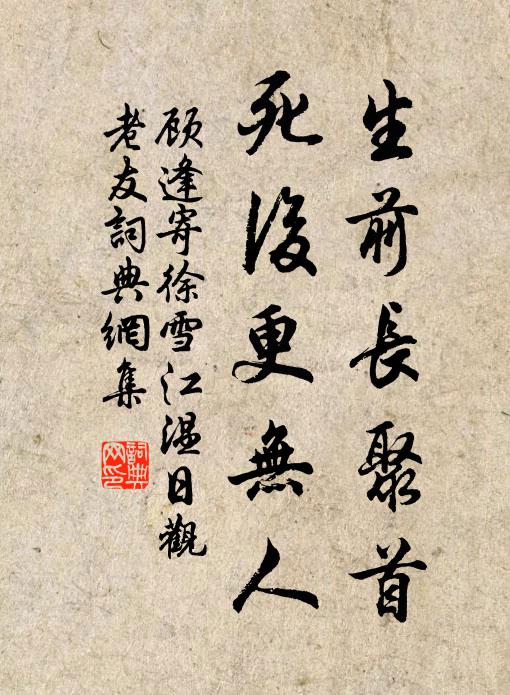 生前長聚首
死後更無人
顾逢寄徐雪江温日觀
老友詞典網集
詞典
网印